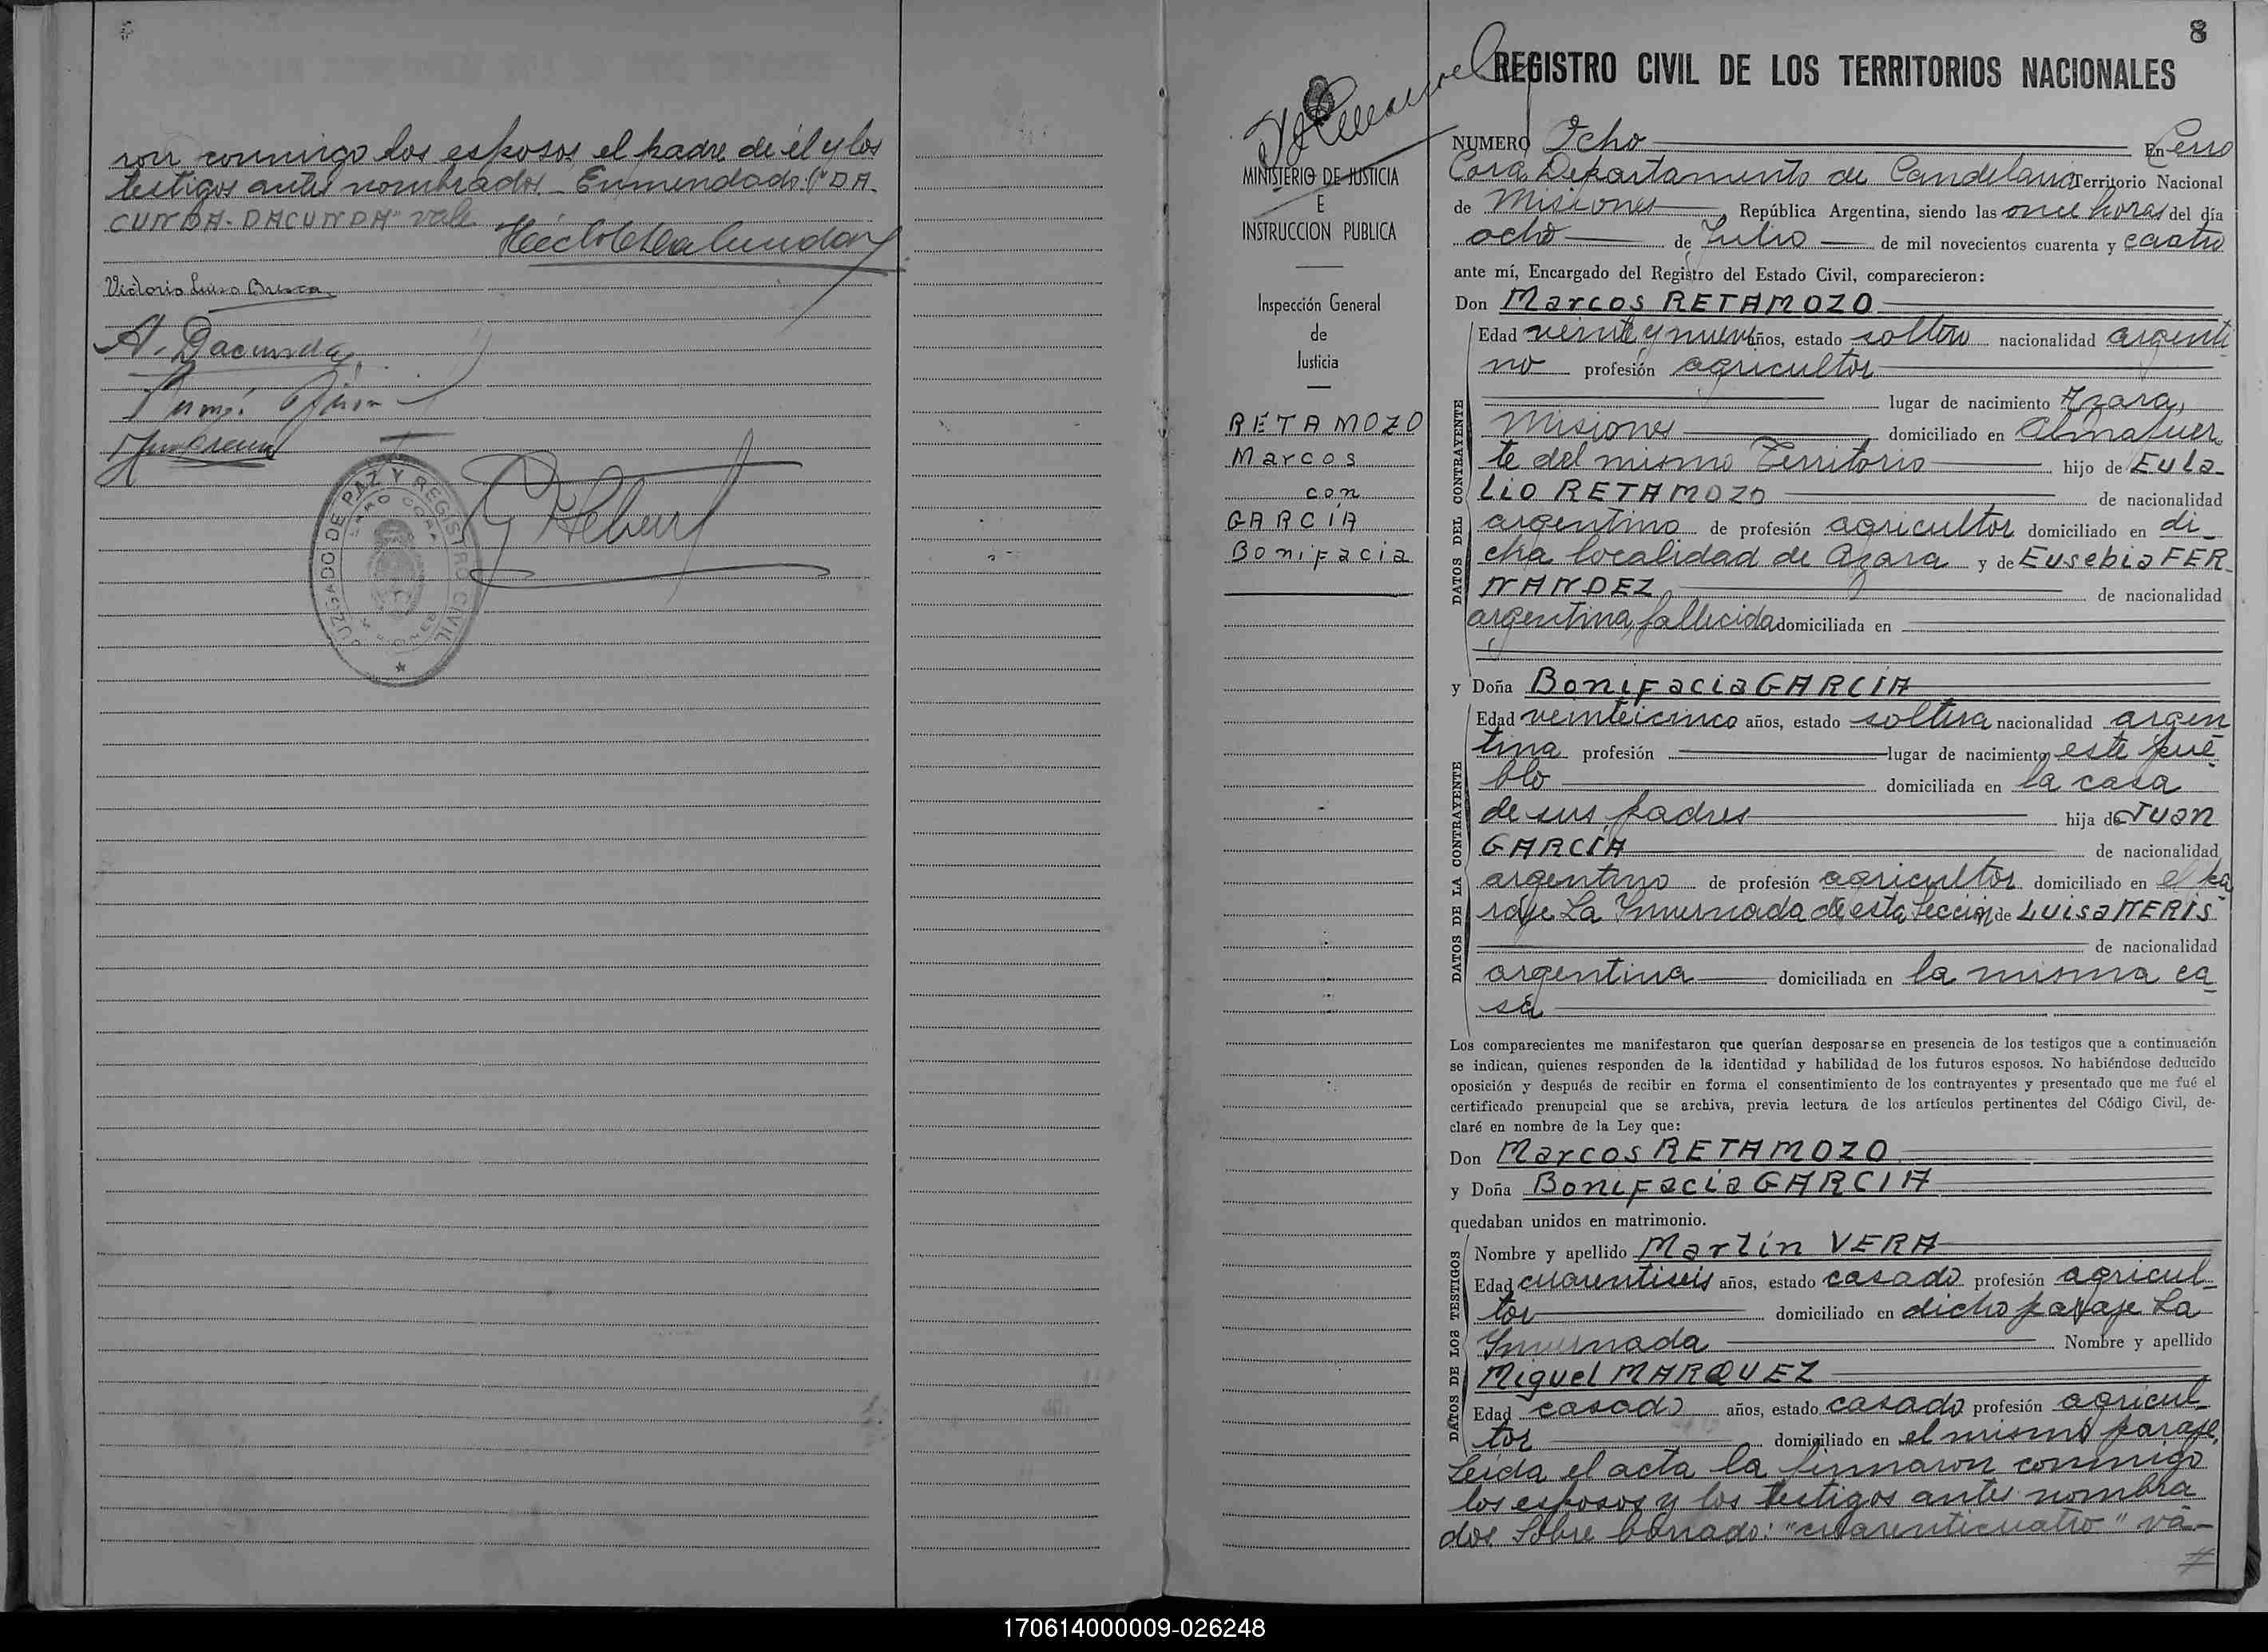 ron conmigo los esposos el padre de él y los
testigos antes nombrados_ Enmendado: "DA_
CUNDA-DACUNDA" vale
Victoria Luisa
A. Dacunda
JUZGADO DE PAZ Y REGISTRO CIVIL
CERRO CORA
MISIONES
8
REGISTRO CIVIL DE LOS TERRITORIOS NACIONALES
MINISTERIO DE JUSTICIA
E
INSTRUCCION PUBLICA
Inspección General
de
Justicia
RETAMOZO
Marcos
con
GARCÍA
Bonifacia
NUMERO Ocho En Cerro
Corá Departamento de Candelaria Territorio Nacional
de Misiones, República Argentina, siendo las once horas del día
ocho de Julio de mil novecientos cuarenta y cuatro
ante mí, Encargado del Registro del Estado Civil, comparecieron:
Don Marcos RETAMOZO
DATOS DEL CONTRAYENTE
Edad veinte y nueve años, estado soltero nacionalidad argenti
no profesión agricultor
lugar de nacimiento Azara,
Misiones domiciliado en Almafuer_
te del mismo Territorio hijo de Eula_
lio RETAMOZO de nacionalidad
argentino de profesión agricultor domiciliado en di_
cha localidad de Azara y de Eusebia FER_
NANDEZ de nacionalidad
argentina, fallecida domiciliada en
y Doña Bonifacia GARCÍA
DATOS DE LA CONTRAYENTE
Edad veinteicinco años, estado soltera nacionalidad argen
tina profesión lugar de nacimiento este pue_
blo domiciliada en la casa
de sus padres hija de Juan
GARCÍA de nacionalidad
argentino de profesión agricultor domiciliado en el pa
raje La Invernada de esta Sección de Luisa NERIS
de nacionalidad
argentina domiciliada en la misma ca_
sa
Los comparecientes me manifestaron que querían desposarse en presencia de los testigos que a continuación
se indican, quienes responden de la identidad y habilidad de los futuros esposos. No habiéndose deducido
oposición y después de recibir en forma el consentimiento de los contrayentes y presentado que me fué el
certificado prenupcial que se archiva, previa lectura de los artículos pertinentes del Código Civil, de-
claré en nombre de la Ley que:
Don Marcos RETAMOZO
y Doña Bonifacia GARCIA
quedaban unidos en matrimonio.
DATOS DE LOS TESTIGOS
Nombre y apellido Martín VERA
Edad cuarentiseis años, estado casado profesión agricul_
tor domiciliado en dicho paraje La
Invernada Nombre y apellido
Miguel MARQUEZ
Edad casado años, estado casado profesión agricul_
tor domiciliado en el mismo paraje.
Leída el acta la firmaron conmigo
los esposos y los testigos antes nombra_
dos. Sobre borrado: "cuarenticuatro" va_
#
170614000009-026248